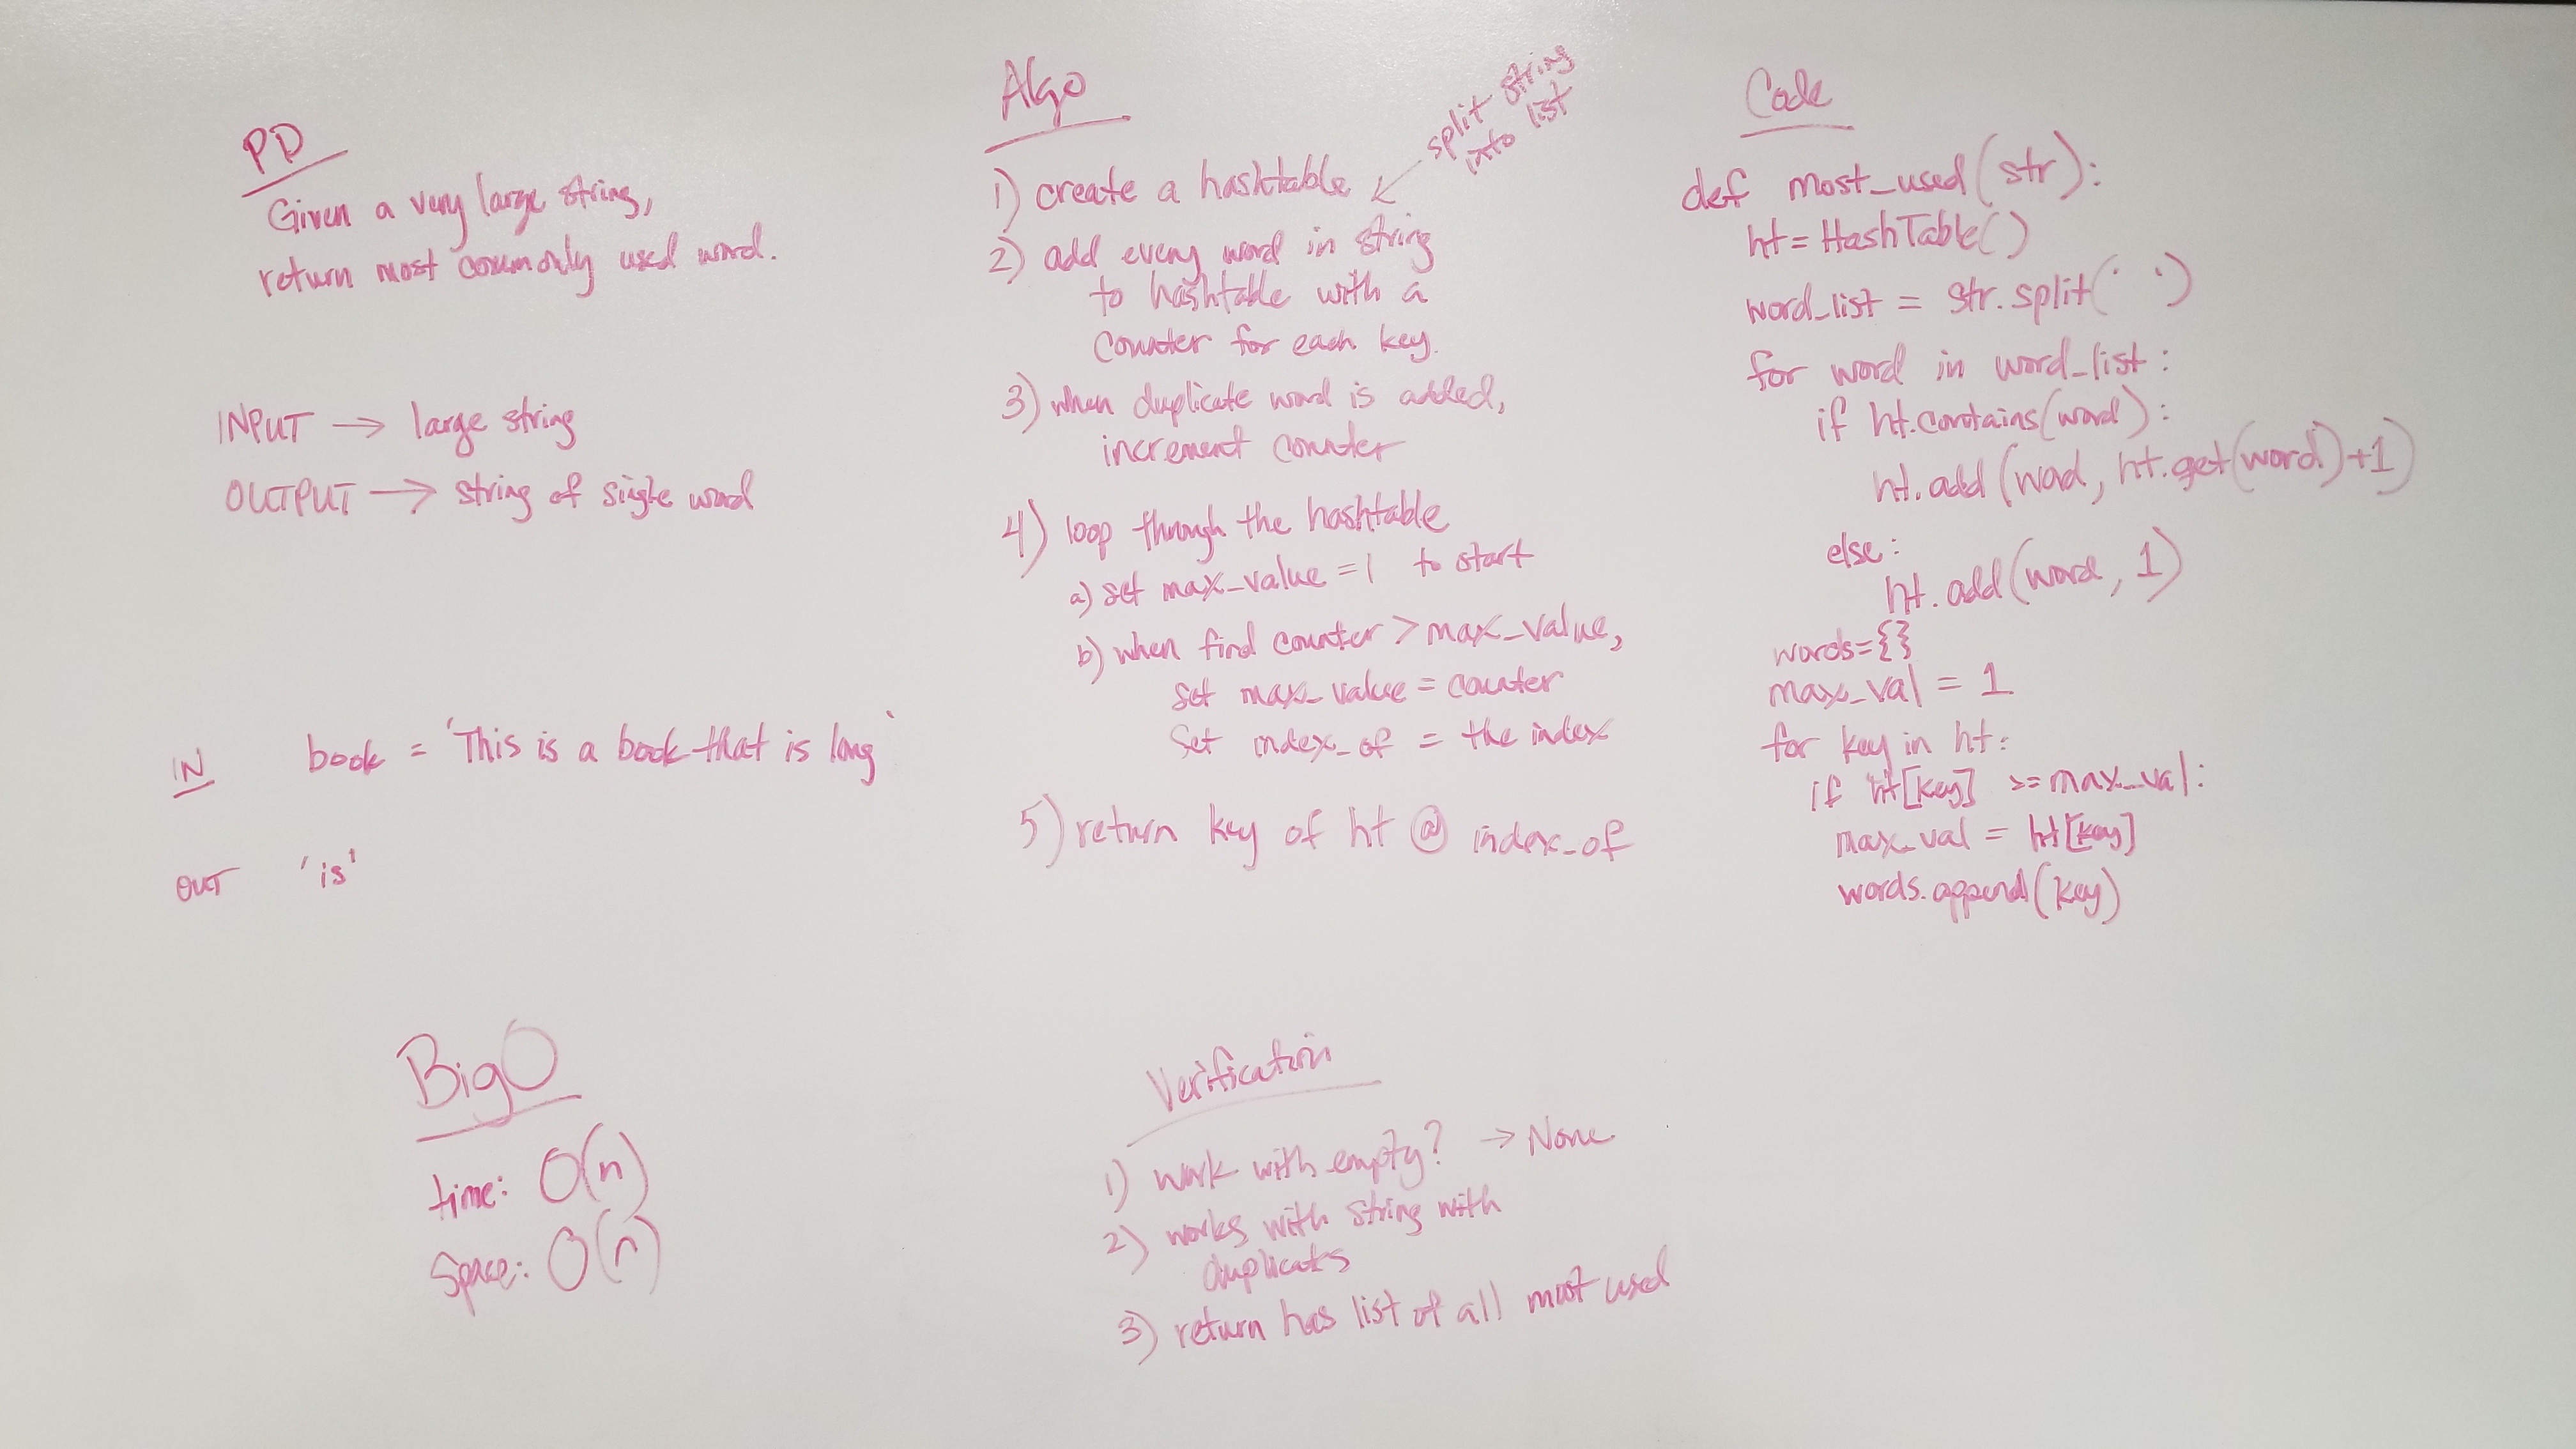 PD
Given a very large string,
return most commonly used word.
INPUT → large string
OUTPUT → string of single word
IN book = 'This is a book that is long'
OUT 'is'
BigO
time: O(n)
Space: O(n)
Algo
split string
into list
1) create a hashtable
2) add every word in string
to hashtable with a
counter for each key.
3) when duplicate word is added,
increment counter
4) loop through the hashtable
a) set max_value = 1 to start
b) when find counter > max_value,
set max_value = counter
Set index_of = the index
5) return key of ht @ index_of
Verification
1) work with empty? → None
2) works with string with
duplicates
3) return has list of all most used
Code
def most_used(str):
ht = HashTable()
word_list = str.split(' ')
for word in word_list:
if ht.contains(word):
ht.add(word, ht.get(word)+1)
else:
ht.add(word, 1)
words={}
max_val = 1
for key in ht:
if ht[key] >= max_val:
max_val = ht[key]
words.append(key)